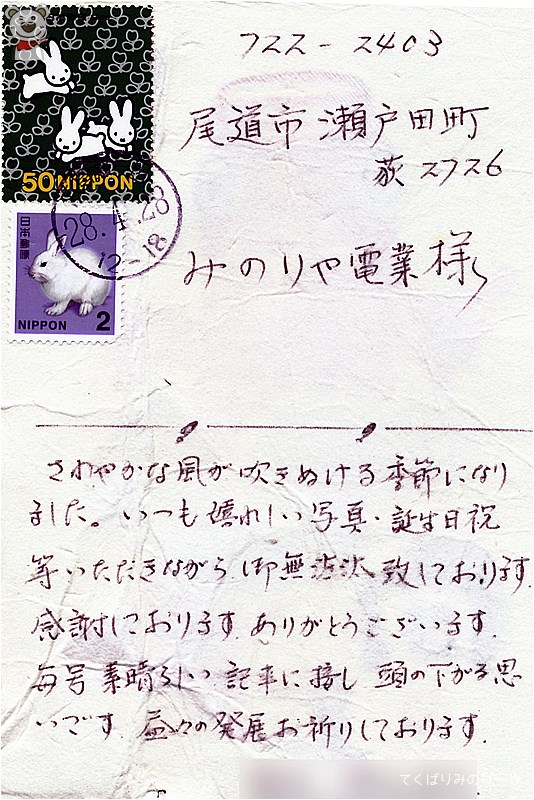 722-2403
尾道市瀬戸田町
荻2726
みのりや電業様
50 NIPPON
28.4.28
12-18
日本郵便
NIPPON 2
さわやかな風が吹きぬける季節になり
ました。いつも嬉れしい写真・誕生日祝
等いただきながら御無沙汰致しております.
感謝しております.ありがとうございます.
毎号素晴らしい記事に接し 頭の下がる思
いです.益々の発展お祈りしております.
てくばりみのりーや